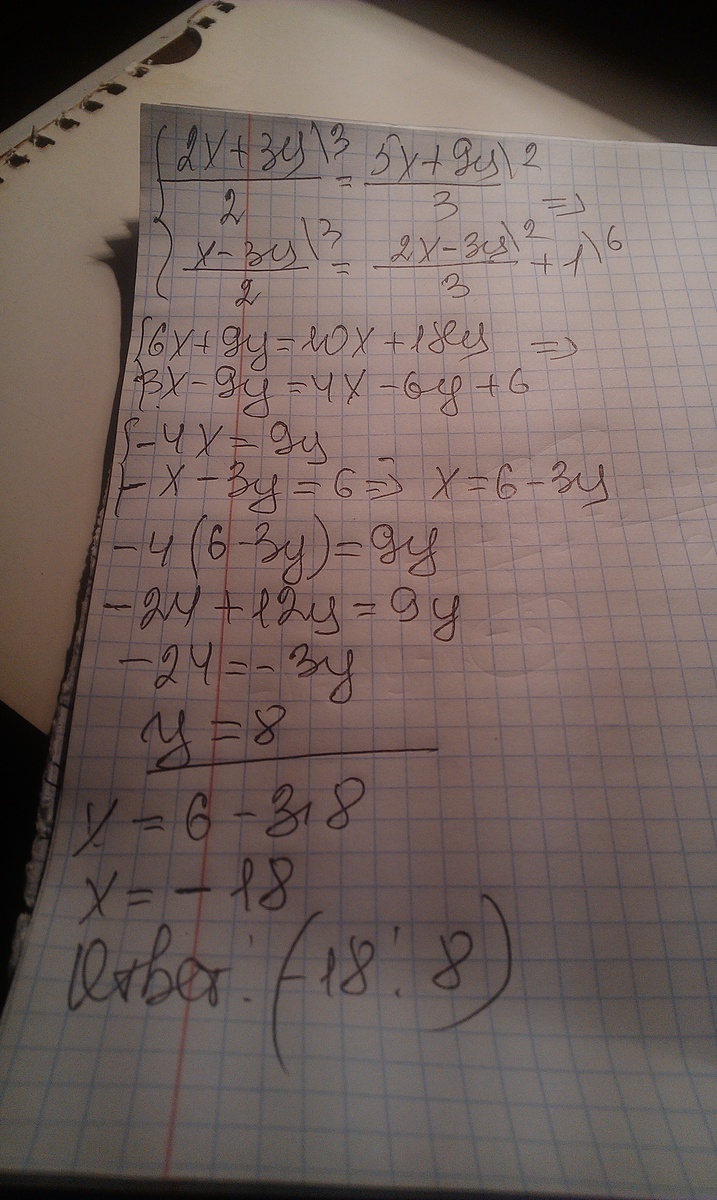 { (2x+3y)/2 \3 = (5x+9y)/3 \2 =>
(x-3y)/2 \3 = (2x-3y)/3 \2 + 1 \6
{ 6x+9y=10x+18y =>
3x-9y=4x-6y+6
{ -4x=9y
-x-3y=6 => x=6-3y
-4(6-3y)=9y
-24+12y=9y
-24=-3y
y=8
x=6-3·8
x=-18
Ответ: (-18; 8)